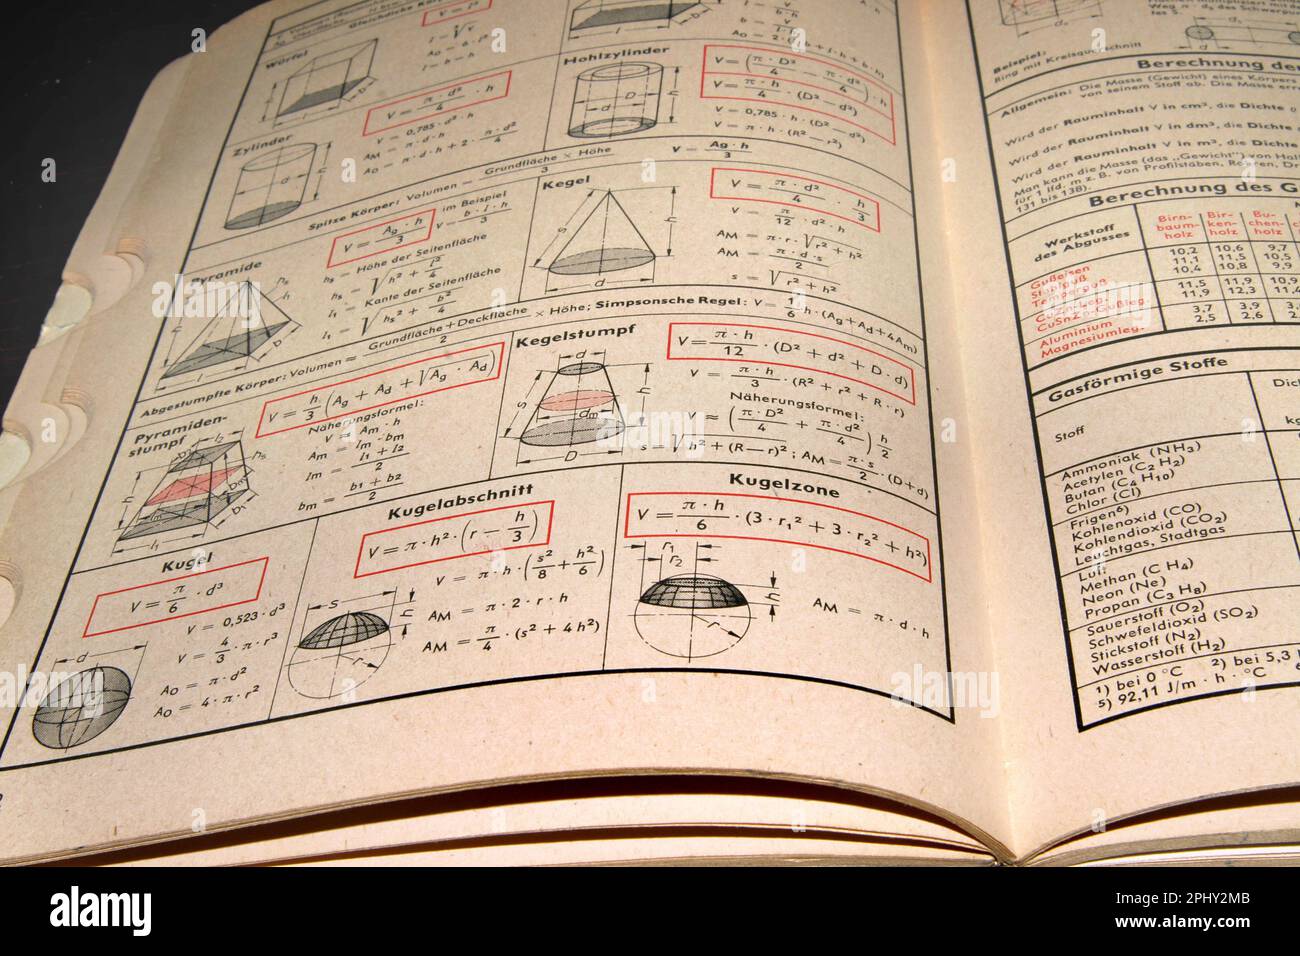 Gleichdicke Kör
Würfel
V = l³
Zylinder
V = π · d² / 4 · h
V = 0,785 · d² · h
A_M = π · d · h
A_O = π · d · h + 2 · π · d² / 4
Hohlzylinder
V = (π · D² / 4 − π · d² / 4) · h
V = π · h / 4 · (D² − d²)
V = 0,785 · h · (D² − d²)
V = π · h · (R² − r²)
Spitze Körper: Volumen = Grundfläche × Höhe / 3
V = Ag · h / 3
Pyramide
V = Ag · h / 3
im Beispiel
V = b · l · h / 3
hs = Höhe der Seitenfläche
hs = √(h² + l² / 4)
l₁ = Kante der Seitenfläche
l₁ = √(hs² + b² / 4)
Kegel
V = π · d² / 4 · h / 3
V = π / 12 · d² · h
A_M = π · r · √(r² + h²)
A_M = π · d · s / 2
s = √(r² + h²)
Abgestumpfte Körper: Volumen ≈ Grundfläche + Deckfläche / 2 × Höhe; Simpsonsche Regel: V = 1 / 6 h · (Ag + Ad + 4Am)
Pyramiden-
stumpf
V = h / 3 (Ag + Ad + √(Ag · Ad))
Näherungsformel:
V ≈ Am · h
Am = lm · bm
lm = l₁ + l₂ / 2
bm = b₁ + b₂ / 2
Kegelstumpf
V = π · h / 12 · (D² + d² + D · d)
V = π · h / 3 · (R² + r² + R · r)
Näherungsformel:
V ≈ (π · D² / 4 + π · d² / 4) h / 2
s = √(h² + (R — r)²) ; A_M = π · s / 2 · (D + d)
Kugel
V = π / 6 · d³
V = 0,523 · d³
V = 4 / 3 · π · r³
A_O = π · d²
A_O = 4 · π · r²
Kugelabschnitt
V = π · h² · (r — h / 3)
V = π · h · (s² / 8 + h² / 6)
A_M = π · 2 · r · h
A_M = π / 4 · (s² + 4h²)
Kugelzone
V = π · h / 6 · (3 · r₁² + 3 · r₂² + h²)
A_M = π · d · h
Beispiel:
Ring mit Kreisquerschnitt
Berechnung der
Allgemein: Die Masse (Gewicht) eines Körpers
von seinem Stoff ab. Die Masse
Wird der Rauminhalt V in cm³, die Dichte
Wird der Rauminhalt V in dm³, die Dichte
Wird der Rauminhalt V in m³, die Dichte
Man kann die Masse (das „Gewicht") von
für 1 lfd. m z. B. von Profilstäben, Rohren,
131 bis 138).
Berechnung des G
Werkstoff
des Abgusses
Birn-
baum-
holz
Bir-
ken-
holz
Bu-
chen-
holz
Gußeisen 10,2 10,6 9,7
Stahlguß 11,1 11,5 10,5
Temperguß 10,4 10,8 9,9
CuZn-Leg. 11,5 11,9 10,9
CuSnZn-Gußleg. 11,9 12,3 11,4
Aluminium 3,7 3,9
Magnesiumleg. 2,5 2,6
Gasförmige Stoffe
Stoff
Ammoniak (NH₃)
Acetylen (C₂H₂)
Butan (C₄H₁₀)
Chlor (Cl)
Frigen⁶)
Kohlenoxid (CO)
Kohlendioxid (CO₂)
Leuchtgas, Stadtgas
Luft
Methan (CH₄)
Neon (Ne)
Propan (C₃H₈)
Sauerstoff (O₂)
Schwefeldioxid (SO₂)
Stickstoff (N₂)
Wasserstoff (H₂)
¹) bei 0 °C ²) bei 5,3
⁵) 92,11 J/m · h · °C
alamy
Image ID: 2PHY2MB
www.alamy.com